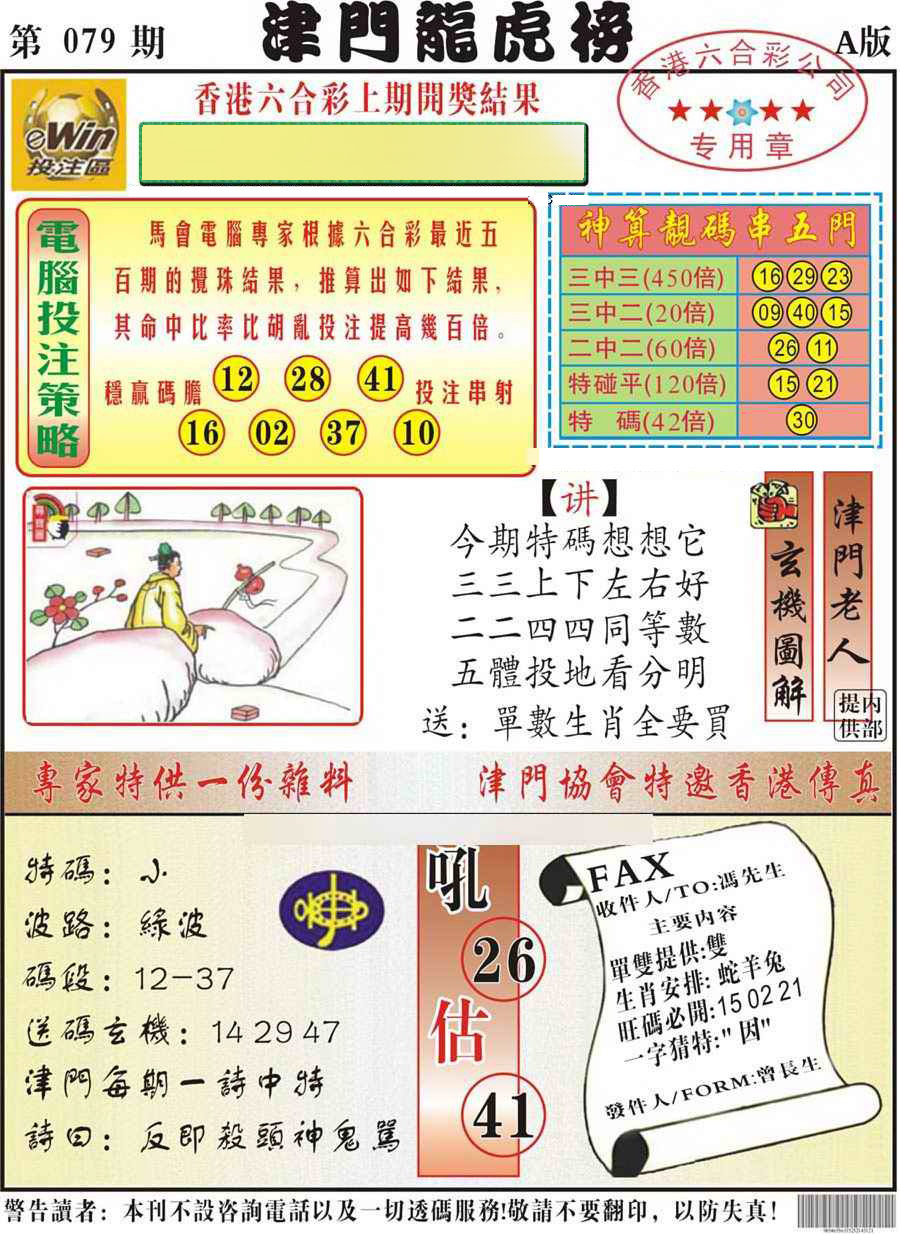 第 079 期
津門龍虎榜
A版
香港六合彩上期開獎結果
香港六合彩公司
专用章
eWin
投注區
電腦投注策略
馬會電腦專家根據六合彩最近五
百期的攪珠結果，推算出如下結果，
其命中比率比胡亂投注提高幾百倍。
穩贏碼膽 12 28 41 投注串射
16 02 37 10
神算靚碼串五門
三中三(450倍) 16 29 23
三中二(20倍) 09 40 15
二中二(60倍) 26 11
特碰平(120倍) 15 21
特 碼(42倍) 30
尋寶圖
【讲】
今期特碼想想它
三三上下左右好
二二四四同等數
五體投地看分明
送：單數生肖全要買
玄機圖解
津門老人
内部
提供
專家特供一份雜料
津門協會特邀香港傳真
特碼：小
波路：綠波
碼段：12－37
送碼玄機：14 29 47
津門每期一詩中特
詩曰：反即殺頭神鬼罵
吼
26
估
41
FAX
收件人/TO:馮先生
主要内容
單雙提供:雙
生肖安排:蛇羊兔
旺碼必開:15 02 21
一字猜特:"因"
發件人/FORM:曾長生
警告讀者：本刊不設咨詢電話以及一切透碼服務!敬請不要翻印，以防失真!